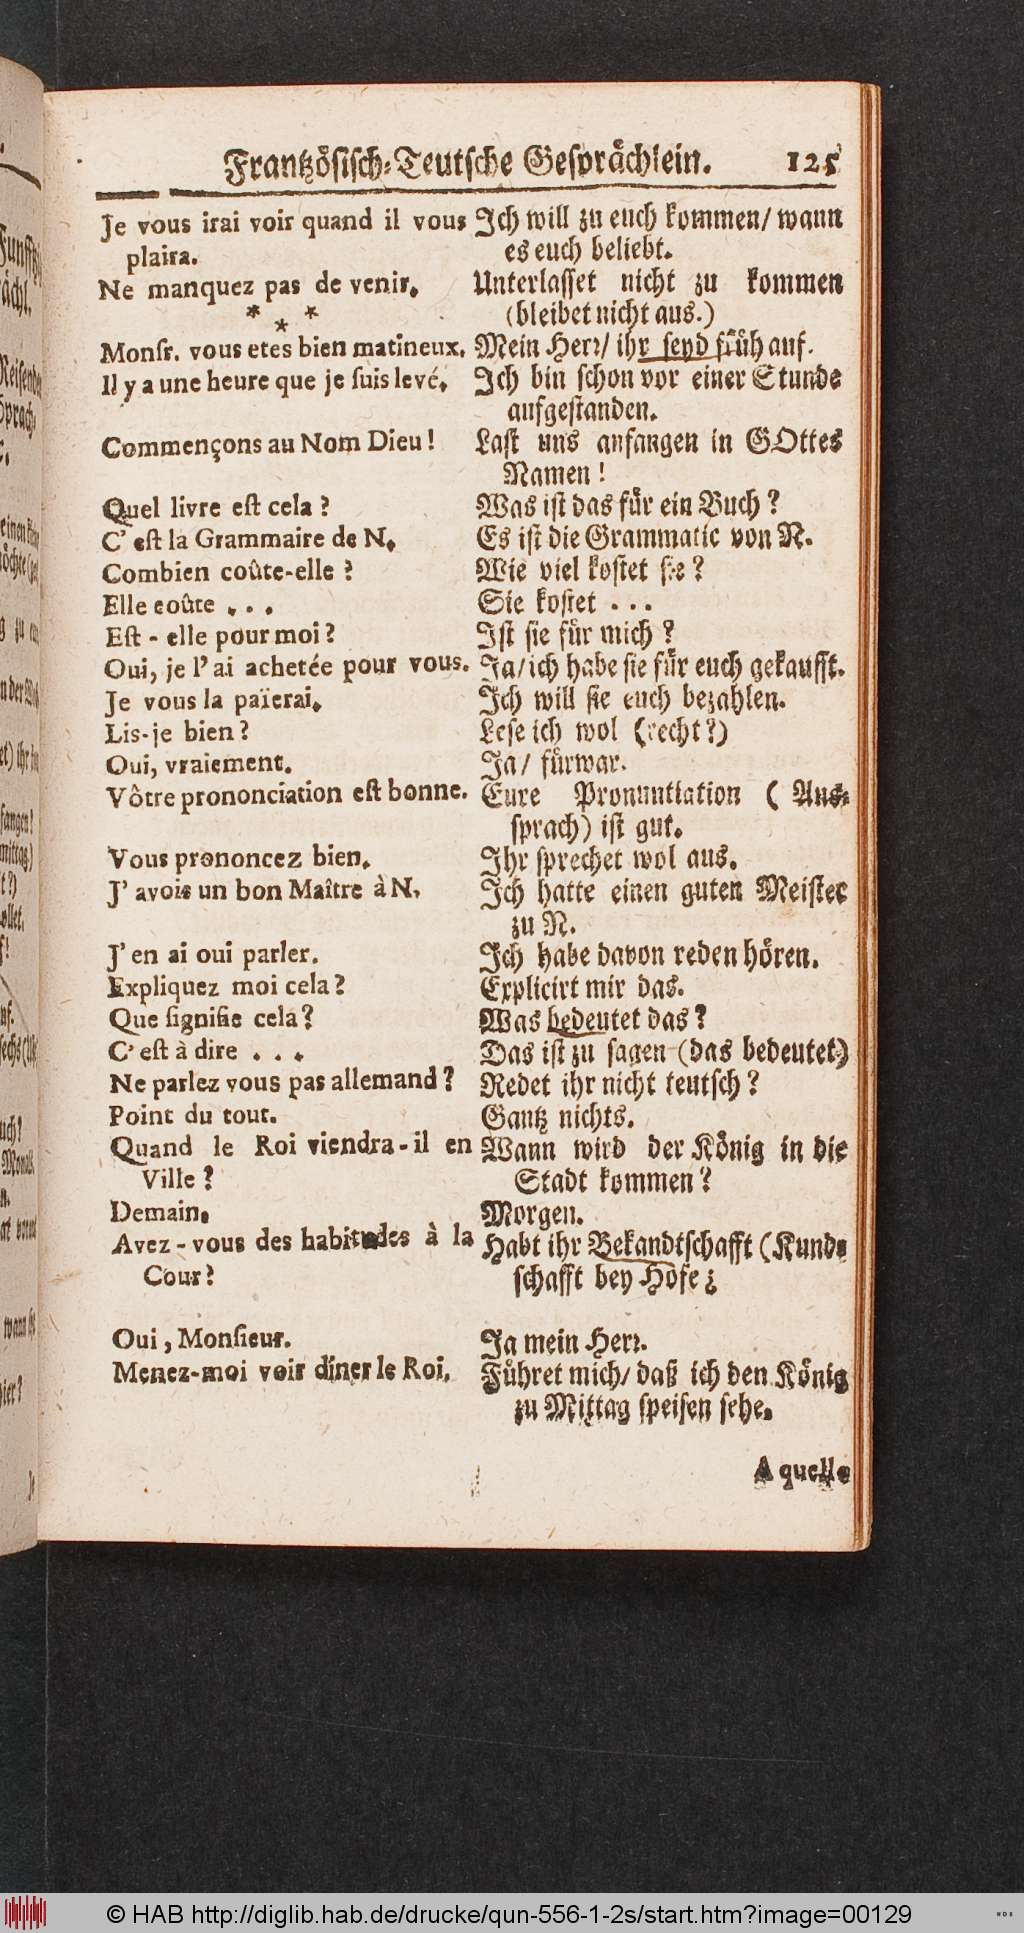 Frantzösisch-Teutsche Gesprächlein. 125
Je vous irai voir quand il vous
plaira.
Ne manquez pas de venir.
* * *
Monsr. vous etes bien matineux.
Il y a une heure que je suis levé.
Commençons au Nom Dieu!
Quel livre est cela?
C'est la Grammaire de N.
Combien coûte-elle?
Elle coûte . . .
Est-elle pour moi?
Oui, je l'ai achetée pour vous.
Je vous la païerai.
Lis-je bien?
Oui, vraiement.
Vôtre prononciation est bonne.
Vous prononcez bien.
J'avois un bon Maître à N.
J'en ai oui parler.
Expliquez moi cela?
Que signifie cela?
C'est à dire . . .
Ne parlez vous pas allemand?
Point du tout.
Quand le Roi viendra-il en
Ville?
Demain.
Avez-vous des habitudes à la
Cour?
Oui, Monsieur.
Menez-moi voir dîner le Roi.
Ich will zu euch kommen/ wann
es euch beliebt.
Unterlasset nicht zu kommen
(bleibet nicht aus.)
Mein Herr/ ihr seyd früh auf.
Ich bin schon vor einer Stunde
aufgestanden.
Last uns anfangen in GOttes
Namen!
Was ist das für ein Buch?
Es ist die Grammatic von N.
Wie viel kostet sie?
Sie kostet . . .
Ist sie für mich?
Ja/ ich habe sie für euch gekaufft.
Ich will sie euch bezahlen.
Lese ich wol (recht?)
Ja/ fürwar.
Eure Pronuntiation (Aus-
sprach) ist gut.
Ihr sprechet wol aus.
Ich hatte einen guten Meister
zu N.
Ich habe davon reden hören.
Explicirt mir das.
Was bedeutet das?
Das ist zu sagen (das bedeutet)
Redet ihr nicht teutsch?
Gantz nichts.
Wann wird der König in die
Stadt kommen?
Morgen.
Habt ihr Bekandtschafft (Kund-
schafft bey Hofe?
Ja mein Herr.
Führet mich/ daß ich den König
zu Mittag speisen sehe.
A quelle
© HAB http://diglib.hab.de/drucke/qun-556-1-2s/start.htm?image=00129